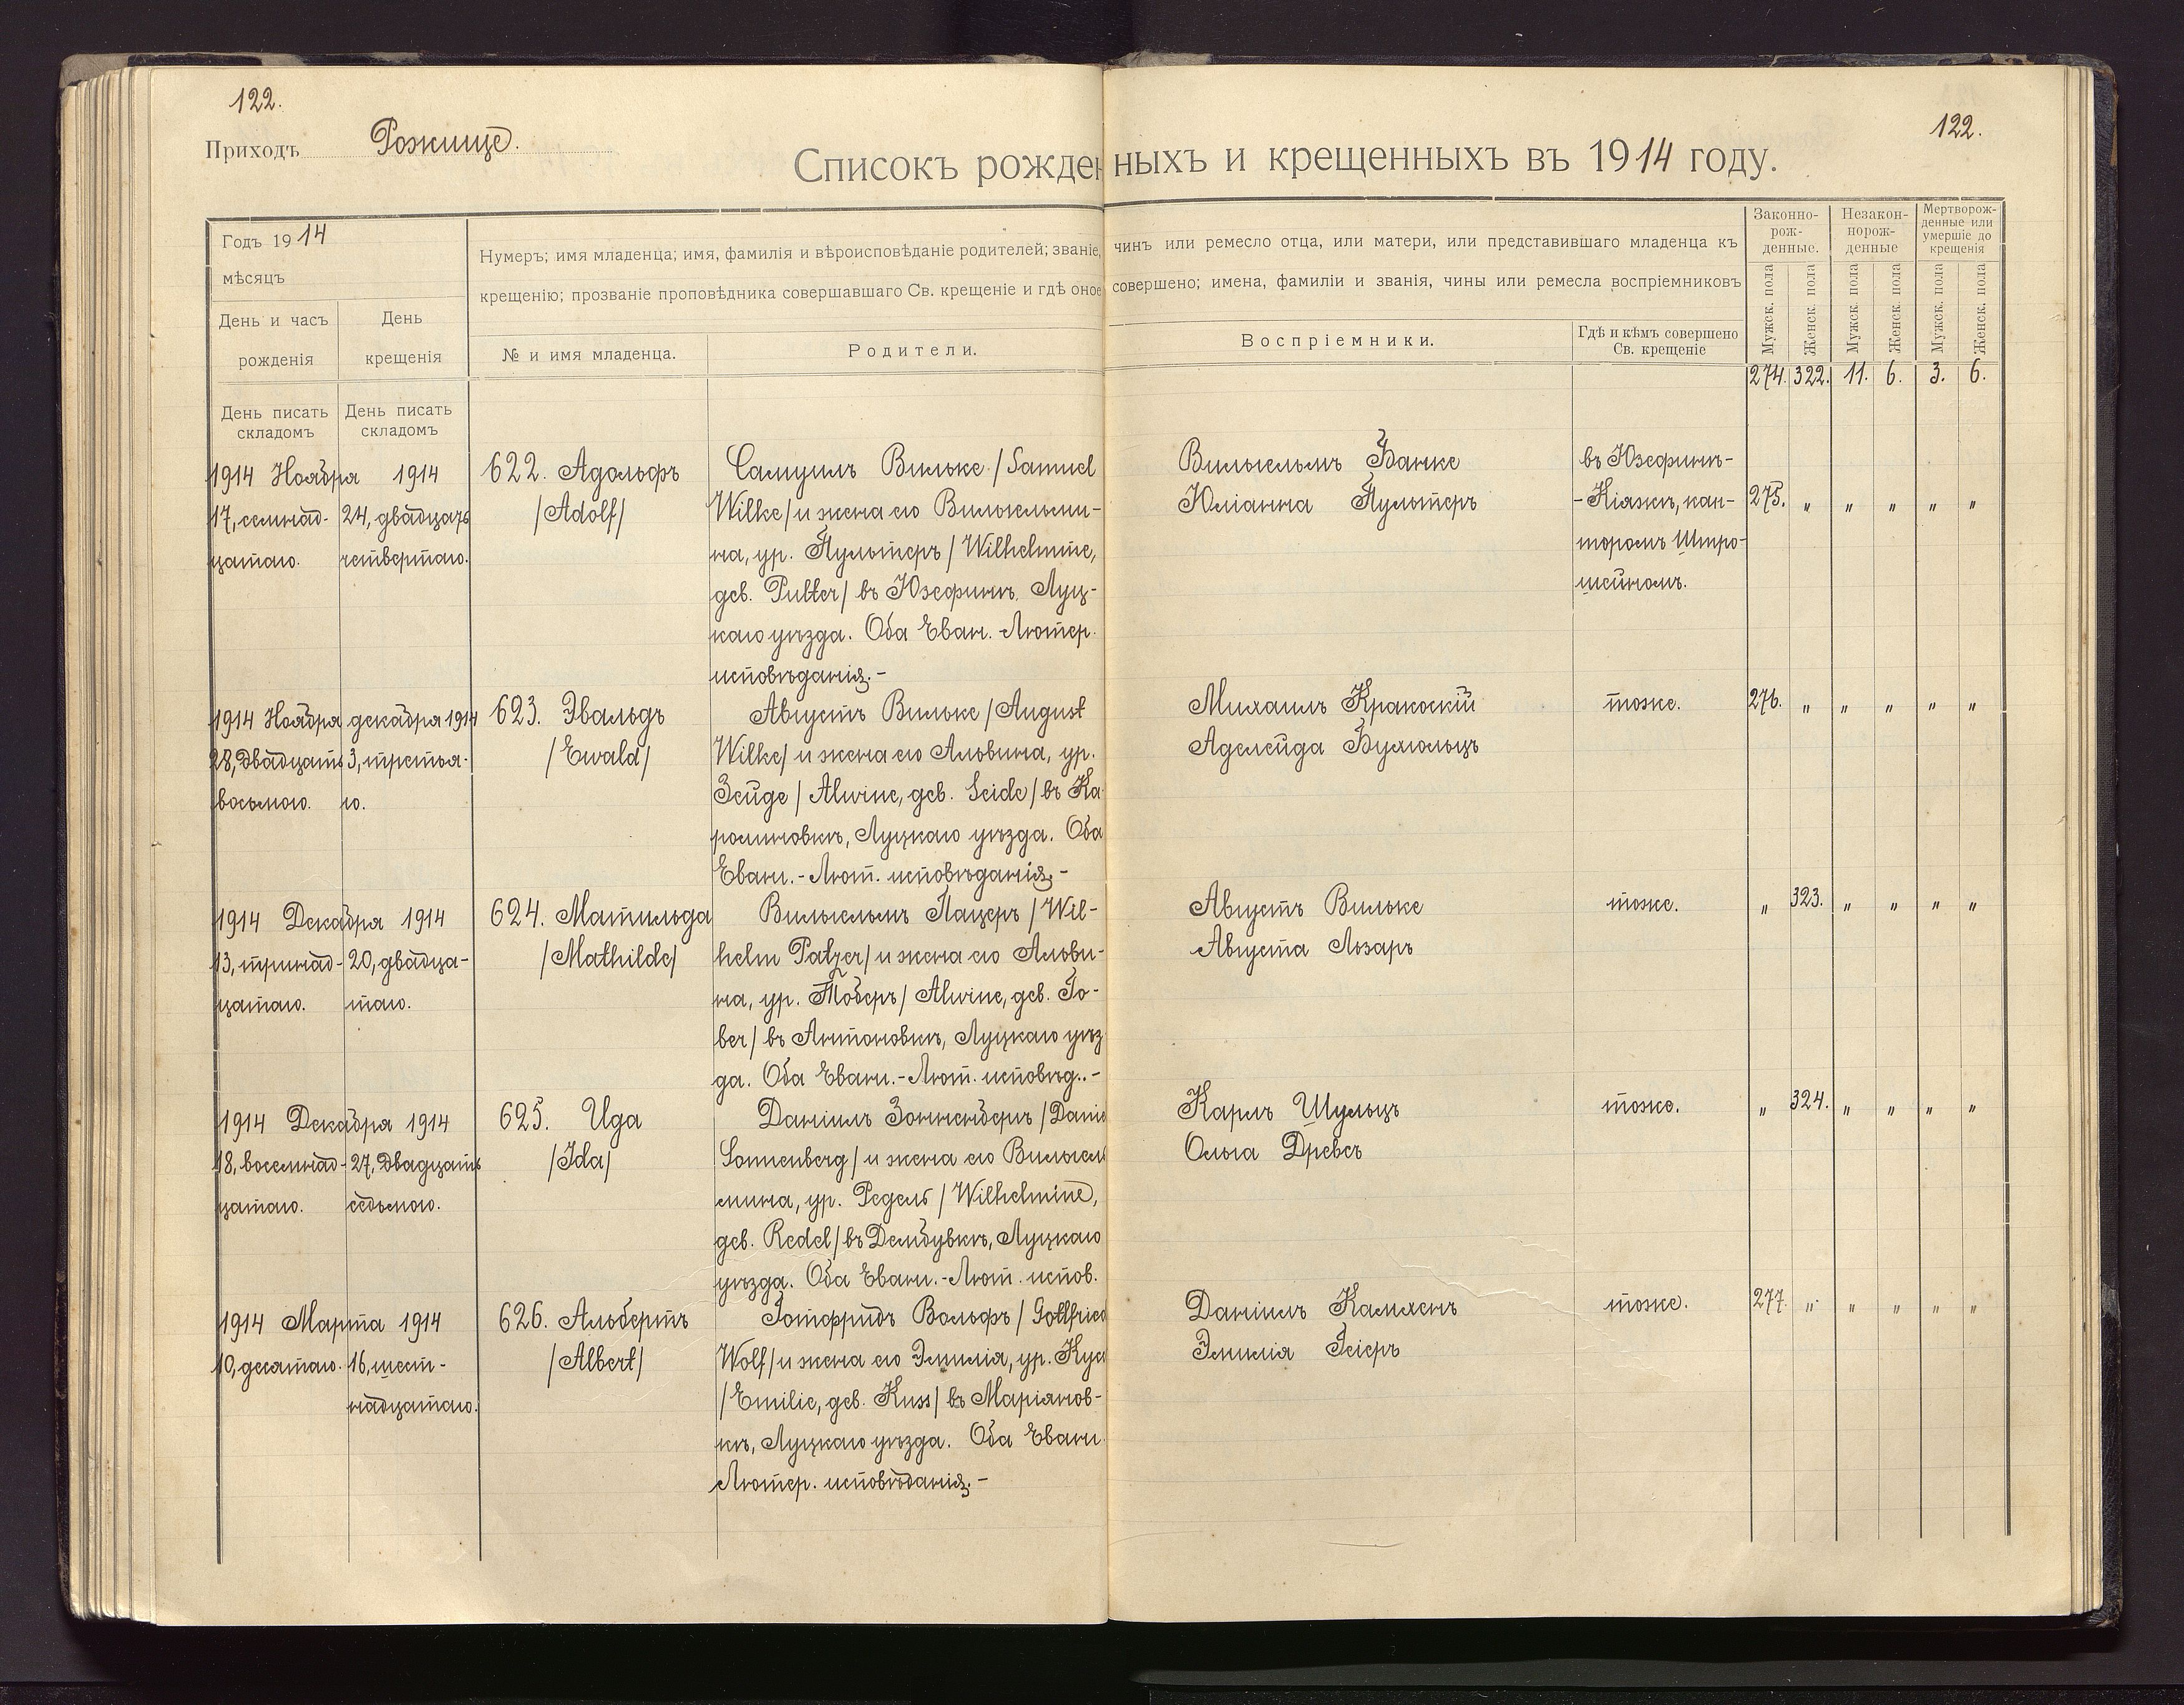 122.
122.
Приходъ Рожище.
Списокъ рожденныхъ и крещенныхъ въ 1914 году.
Годъ 1914
мѣсяцъ
День и часъ рожденія
День крещенія
Нумеръ; имя младенца; имя, фамилія и вѣроисповѣданіе родителей; званіе, чинъ или ремесло отца, или матери, или представившаго младенца къ
крещенію; прозваніе проповѣдника совершавшаго Св. крещеніе и гдѣ оное совершено; имена, фамиліи и званія, чины или ремесла воспріемниковъ
№ и имя младенца.
Родители.
Воспріемники.
Гдѣ и кѣмъ совершено
Св. крещеніе
Законно-
рож-
денные.
Незакон-
норож-
денные
Мертворож-
денные или
умершіе до
крещенія
Мужск. пола
Женск. пола
Мужск. пола
Женск. пола
Мужск. пола
Женск. пола
274. 322. 11. 6. 3. 6.
День писать
складомъ
День писать
складомъ
1914 Ноября 1914
17, семнад-
цатаго.
24, двадцать
четвертаго.
622. Адольфъ
/Adolf/
Самуилъ Вильке /Samuel
Wilke/ и жена его Вильгельми-
на, ур. Пультеръ /Wilhelmine,
geb. Pulter/ въ Юзефинѣ Луц-
каго уѣзда. Оба Еван.-Лютер.
исповѣданія.-
Вильгельмъ Банке
Юліанна Пультеръ
въ Юзефинѣ-
-Кіяжѣ, кан-
торомъ Штро-
шейномъ.
275. " " " " "
1914 Ноября декабря 1914
28, двадцать
восьмого.
3, третья-
го.
623. Эвальдъ
/Ewald/
Августъ Вильке /August
Wilke/ и жена его Альвина, ур.
Зейде /Alwine, geb. Seide/ въ Ка-
ролиновкѣ, Луцкаго уѣзда. Оба
Еванг.-Лют. исповѣданія.-
Михаилъ Кракоскій
Аделейда Бухгольцъ
тоже.
276. " " " " "
1914 Декабря 1914
13, тринад-
цатаго.
20, двадца-
таго.
624. Матильда
/Mathilde/
Вильгельмъ Пацеръ /Wil-
helm Patzer/ и жена его Альви-
на, ур. Тоберъ /Alwine, geb. To-
ber/ въ Антоновкѣ, Луцкаго уѣз-
да. Оба Еванг.-Лют. исповѣд..-
Августъ Вильке
Августа Лѣзаръ
тоже.
" 323. " " " "
1914 Декабря 1914
18, восемнад-
цатаго.
27, двадцать
седьмого.
625. Ида
/Ida/
Даніилъ Зонненбергъ /Daniel
Sonnenberg/ и жена его Вильгель-
мина, ур. Редель /Wilhelmine,
geb. Redel/ въ Дембувкѣ, Луцкаго
уѣзда. Оба Еванг.-Лют. испов.
Карлъ Шульцъ
Ольга Древсъ
тоже.
" 324. " " " "
1914 Марта 1914
10, десятаго.
16, шест-
надцатаго.
626. Альбертъ
/Albert/
Готфридъ Вольфъ /Gottfried
Wolf/ и жена его Эмилія, ур. Кусъ
/Emilie, geb. Kuss/ въ Маріянов-
кѣ, Луцкаго уѣзда. Оба Еванг.
Лютер. исповѣданія.-
Даніилъ Камхенъ
Эмилія Гейеръ
тоже.
277. " " " " "